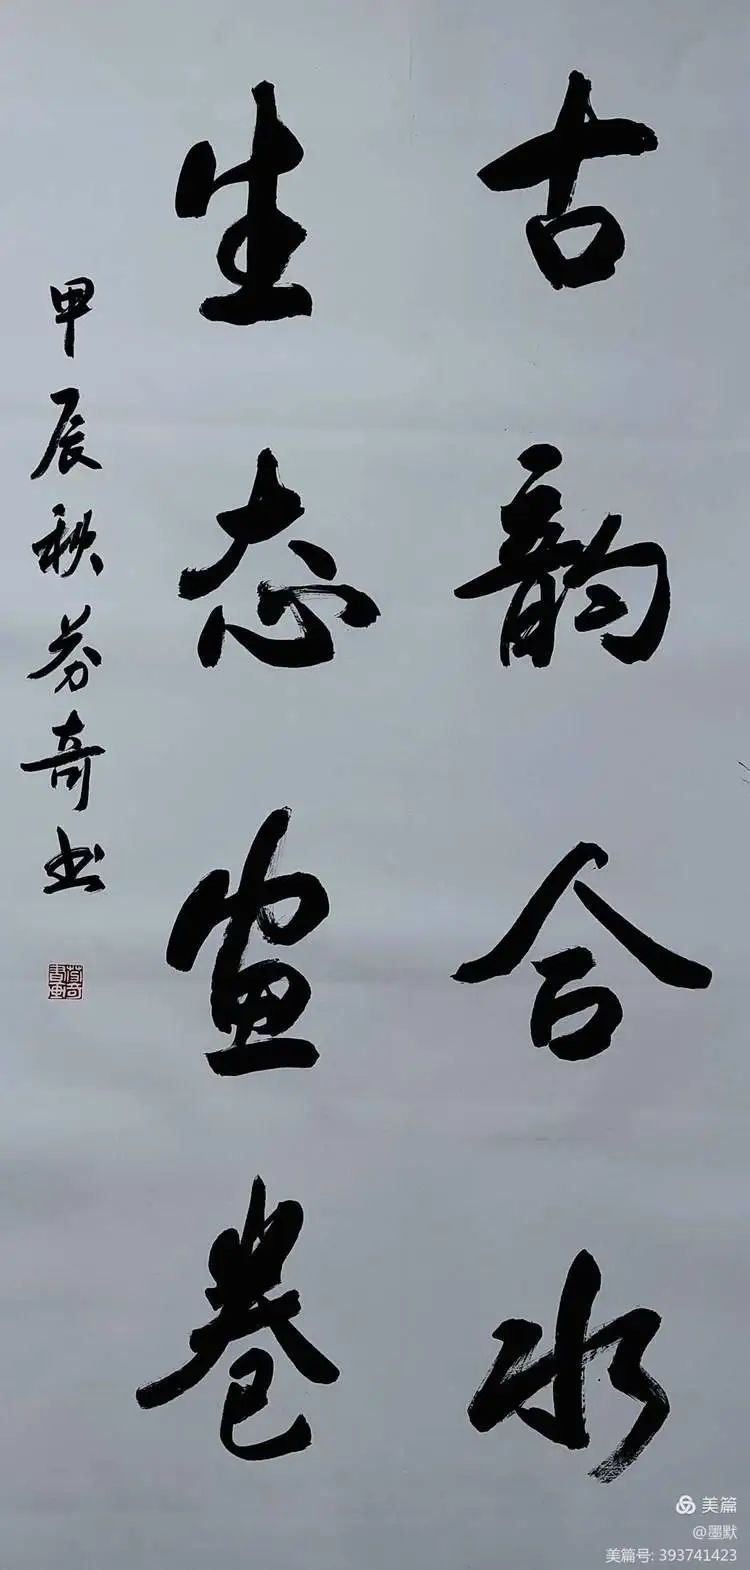 古韵合水
生态画卷
甲辰秋芬奇书
美篇
@墨默
美篇号: 393741423